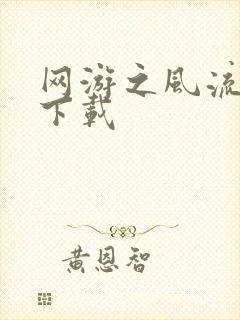 网游之风流
下载
黄恩智